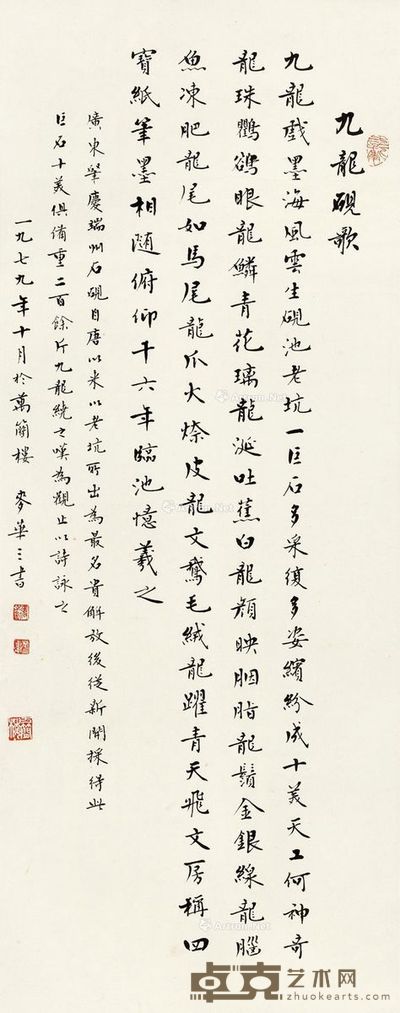 九龍硯歌
九龍戲墨海風雲生硯池老坑一巨石多采復多姿繽紛成十美天工何神奇
龍珠鸜鵒眼龍鱗青花璃龍涎吐蕉白龍顏映胭脂龍鬚金銀線龍腦
魚凍肥龍尾如馬尾龍爪火燎皮龍文鵝毛絨龍躍青天飛文房稱四
寶紙筆墨相隨俯仰千六年臨池憶羲之
廣東肇慶端州石硯自唐以來以老坑所出為最名貴解放後從新開採得此
巨石十美俱備重二百餘斤九龍繞之嘆為觀止以詩詠之
一九七九年十月於萬簡樓 麥華三書
Artron.Net
卓克艺术网
zhuokearts.com